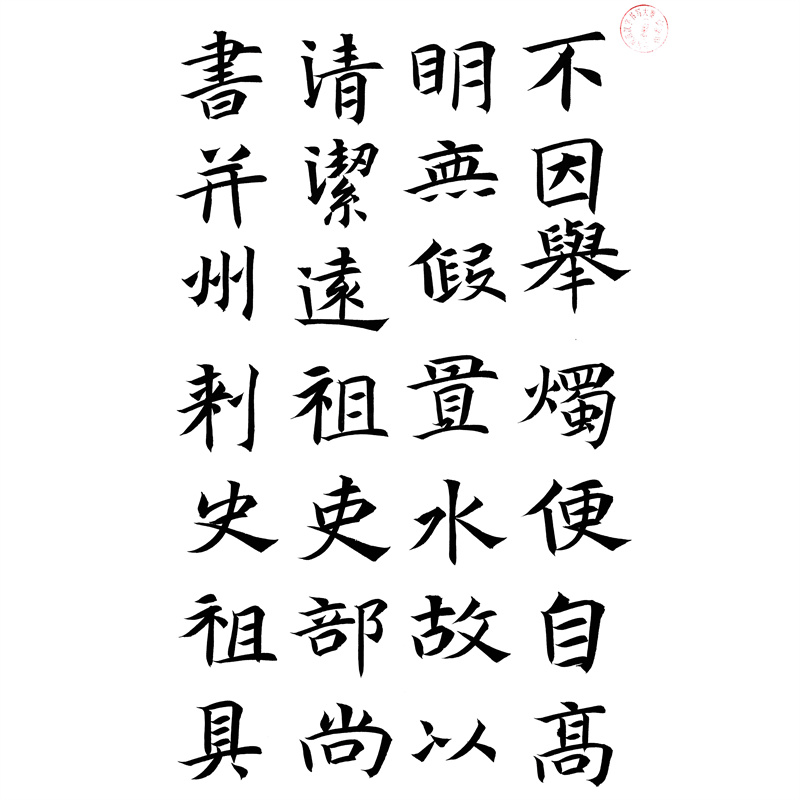 不因舉燭便自高
明無假置水故以
清潔遠祖吏部尚
書并州刺史祖具